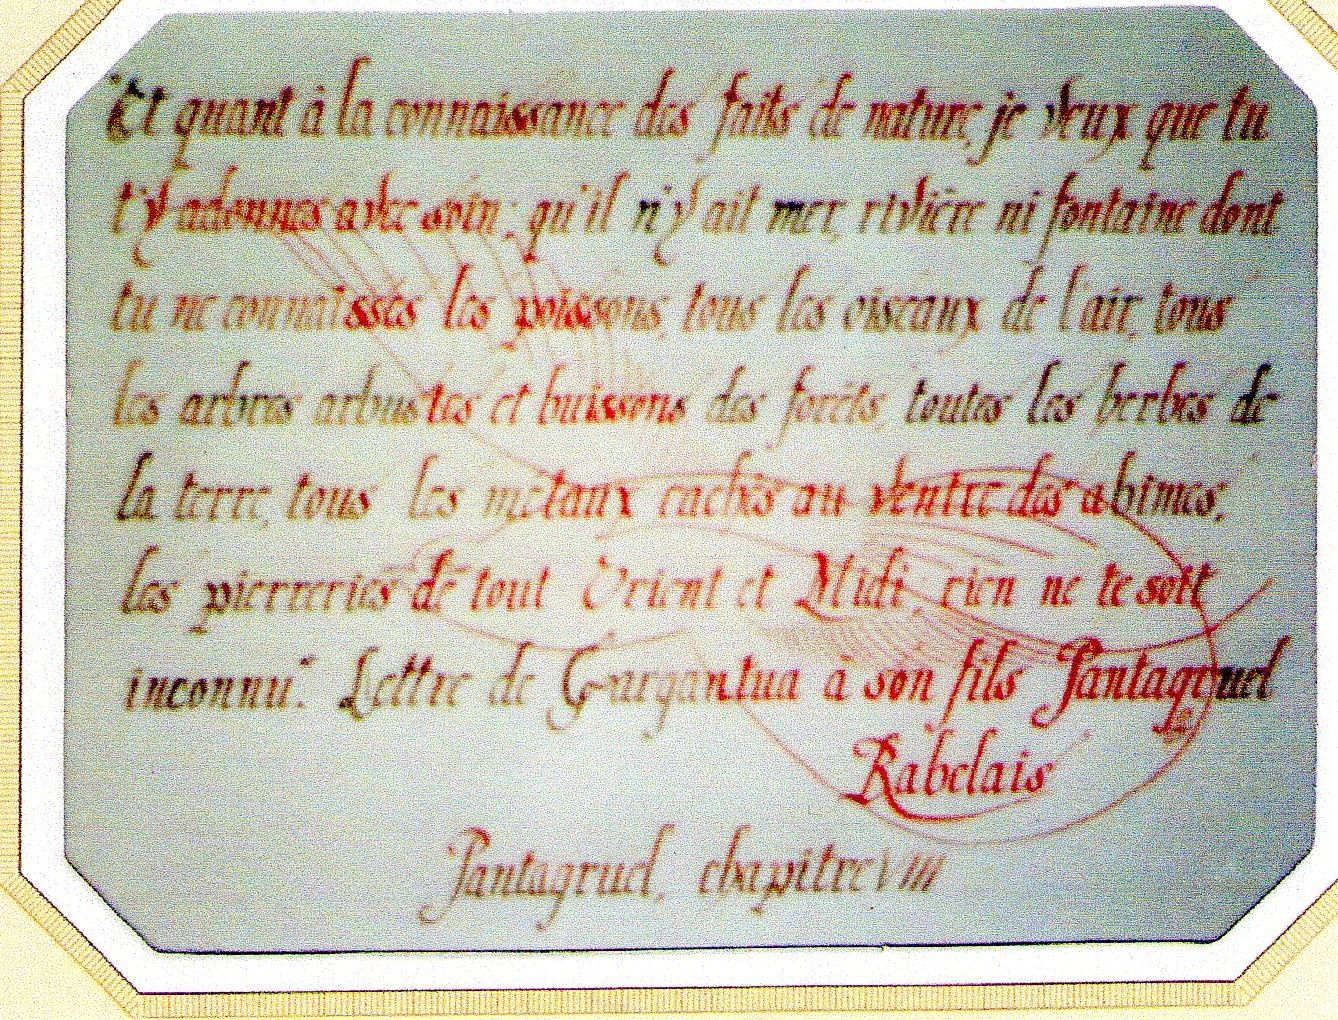 "Et quant à la connaissance des faits de nature, je veux que tu
t'y adonnes avec soin; qu'il n'y ait mer, rivière ni fontaine dont
tu ne connaisses les poissons, tous les oiseaux de l'air, tous
les arbres arbustes et buissons des forêts, toutes les herbes de
la terre, tous les métaux cachés au ventre des abimes,
les pierreries de tout Orient et Midi, rien ne te soit
inconnu". Lettre de Gargantua à son fils Pantagruel
Rabelais
Pantagruel, chapitre VIII